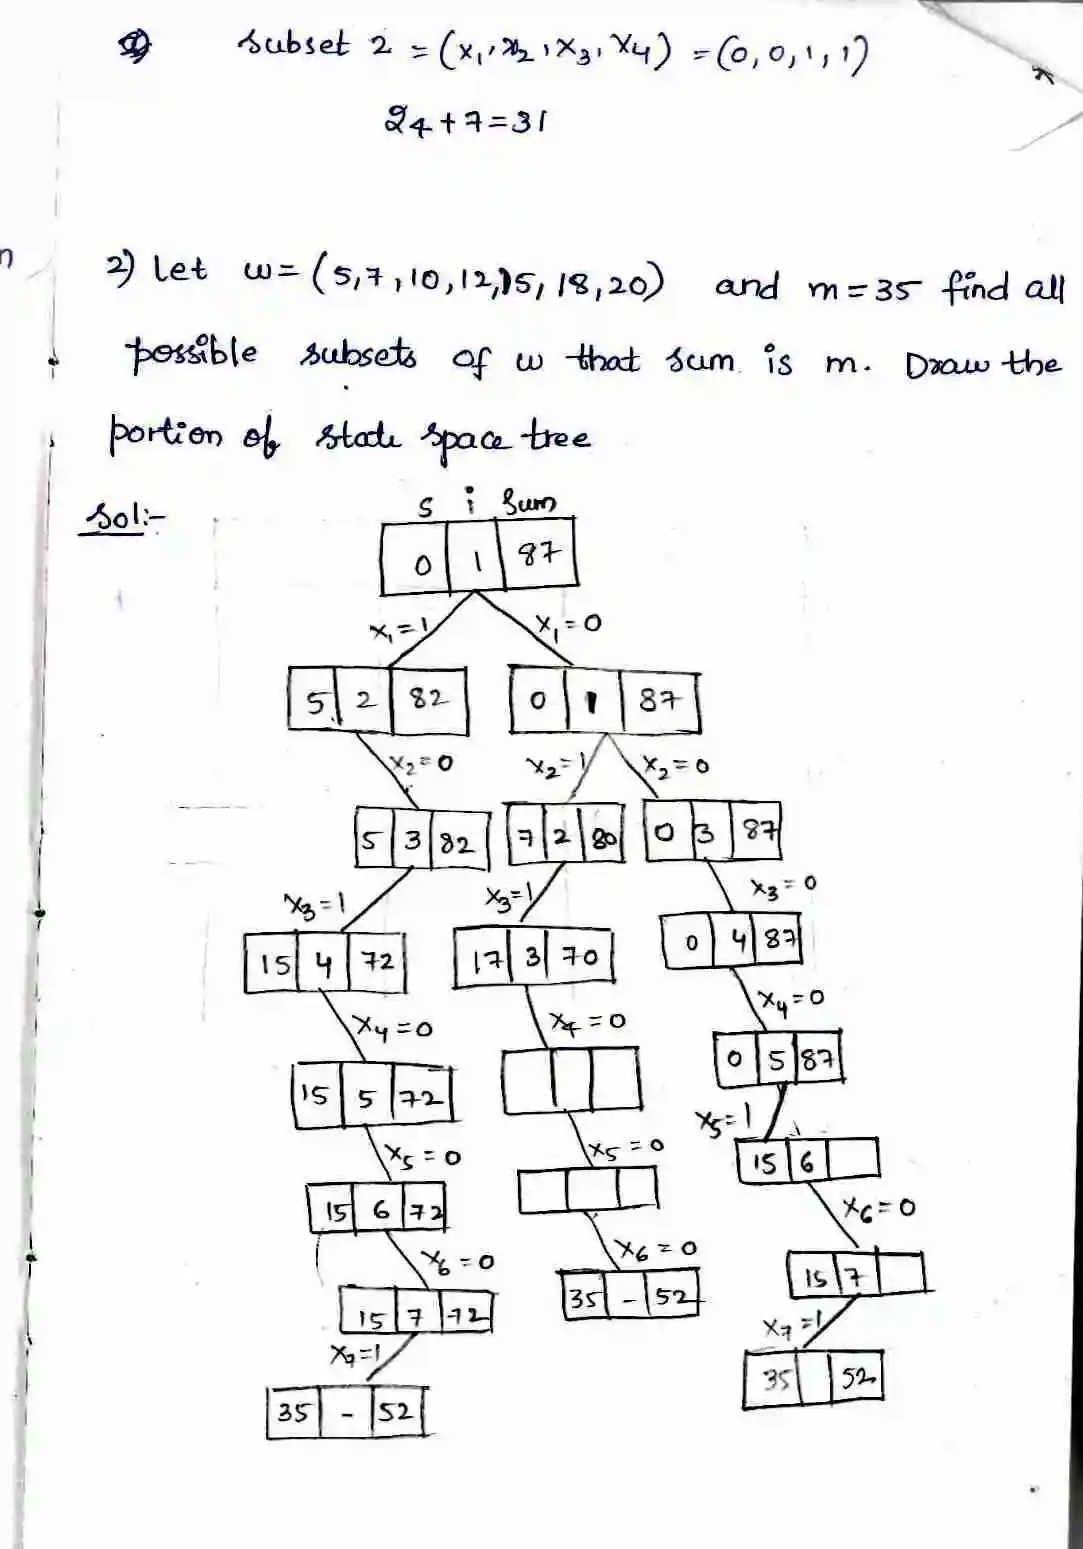 subset 2 = (x₁, x₂, x₃, x₄) = (0, 0, 1, 1)
24 + 7 = 31
n
2) Let w = (5, 7, 10, 12, 15, 18, 20) and m = 35 find all
possible subsets of w that sum is m. Draw the
portion of state space tree
Sol:-
s i sum
0 1 87
x₁ = 1 x₁ = 0
5 2 82 0 1 87
x₂ = 0 x₂ = 1 x₂ = 0
5 3 82 7 2 80 0 3 87
x₃ = 1 x₃ = 1 x₃ = 0
15 4 72 17 3 70 0 4 87
x₄ = 0 x₄ = 0 x₄ = 0
15 5 72 0 5 87
x₅ = 0 x₅ = 0 x₅ = 1
15 6 72 15 6
x₆ = 0 x₆ = 0 x₆ = 0
15 7 72 35 - 52 15 7
x₇ = 1 x₇ = 1
35 - 52 35 52